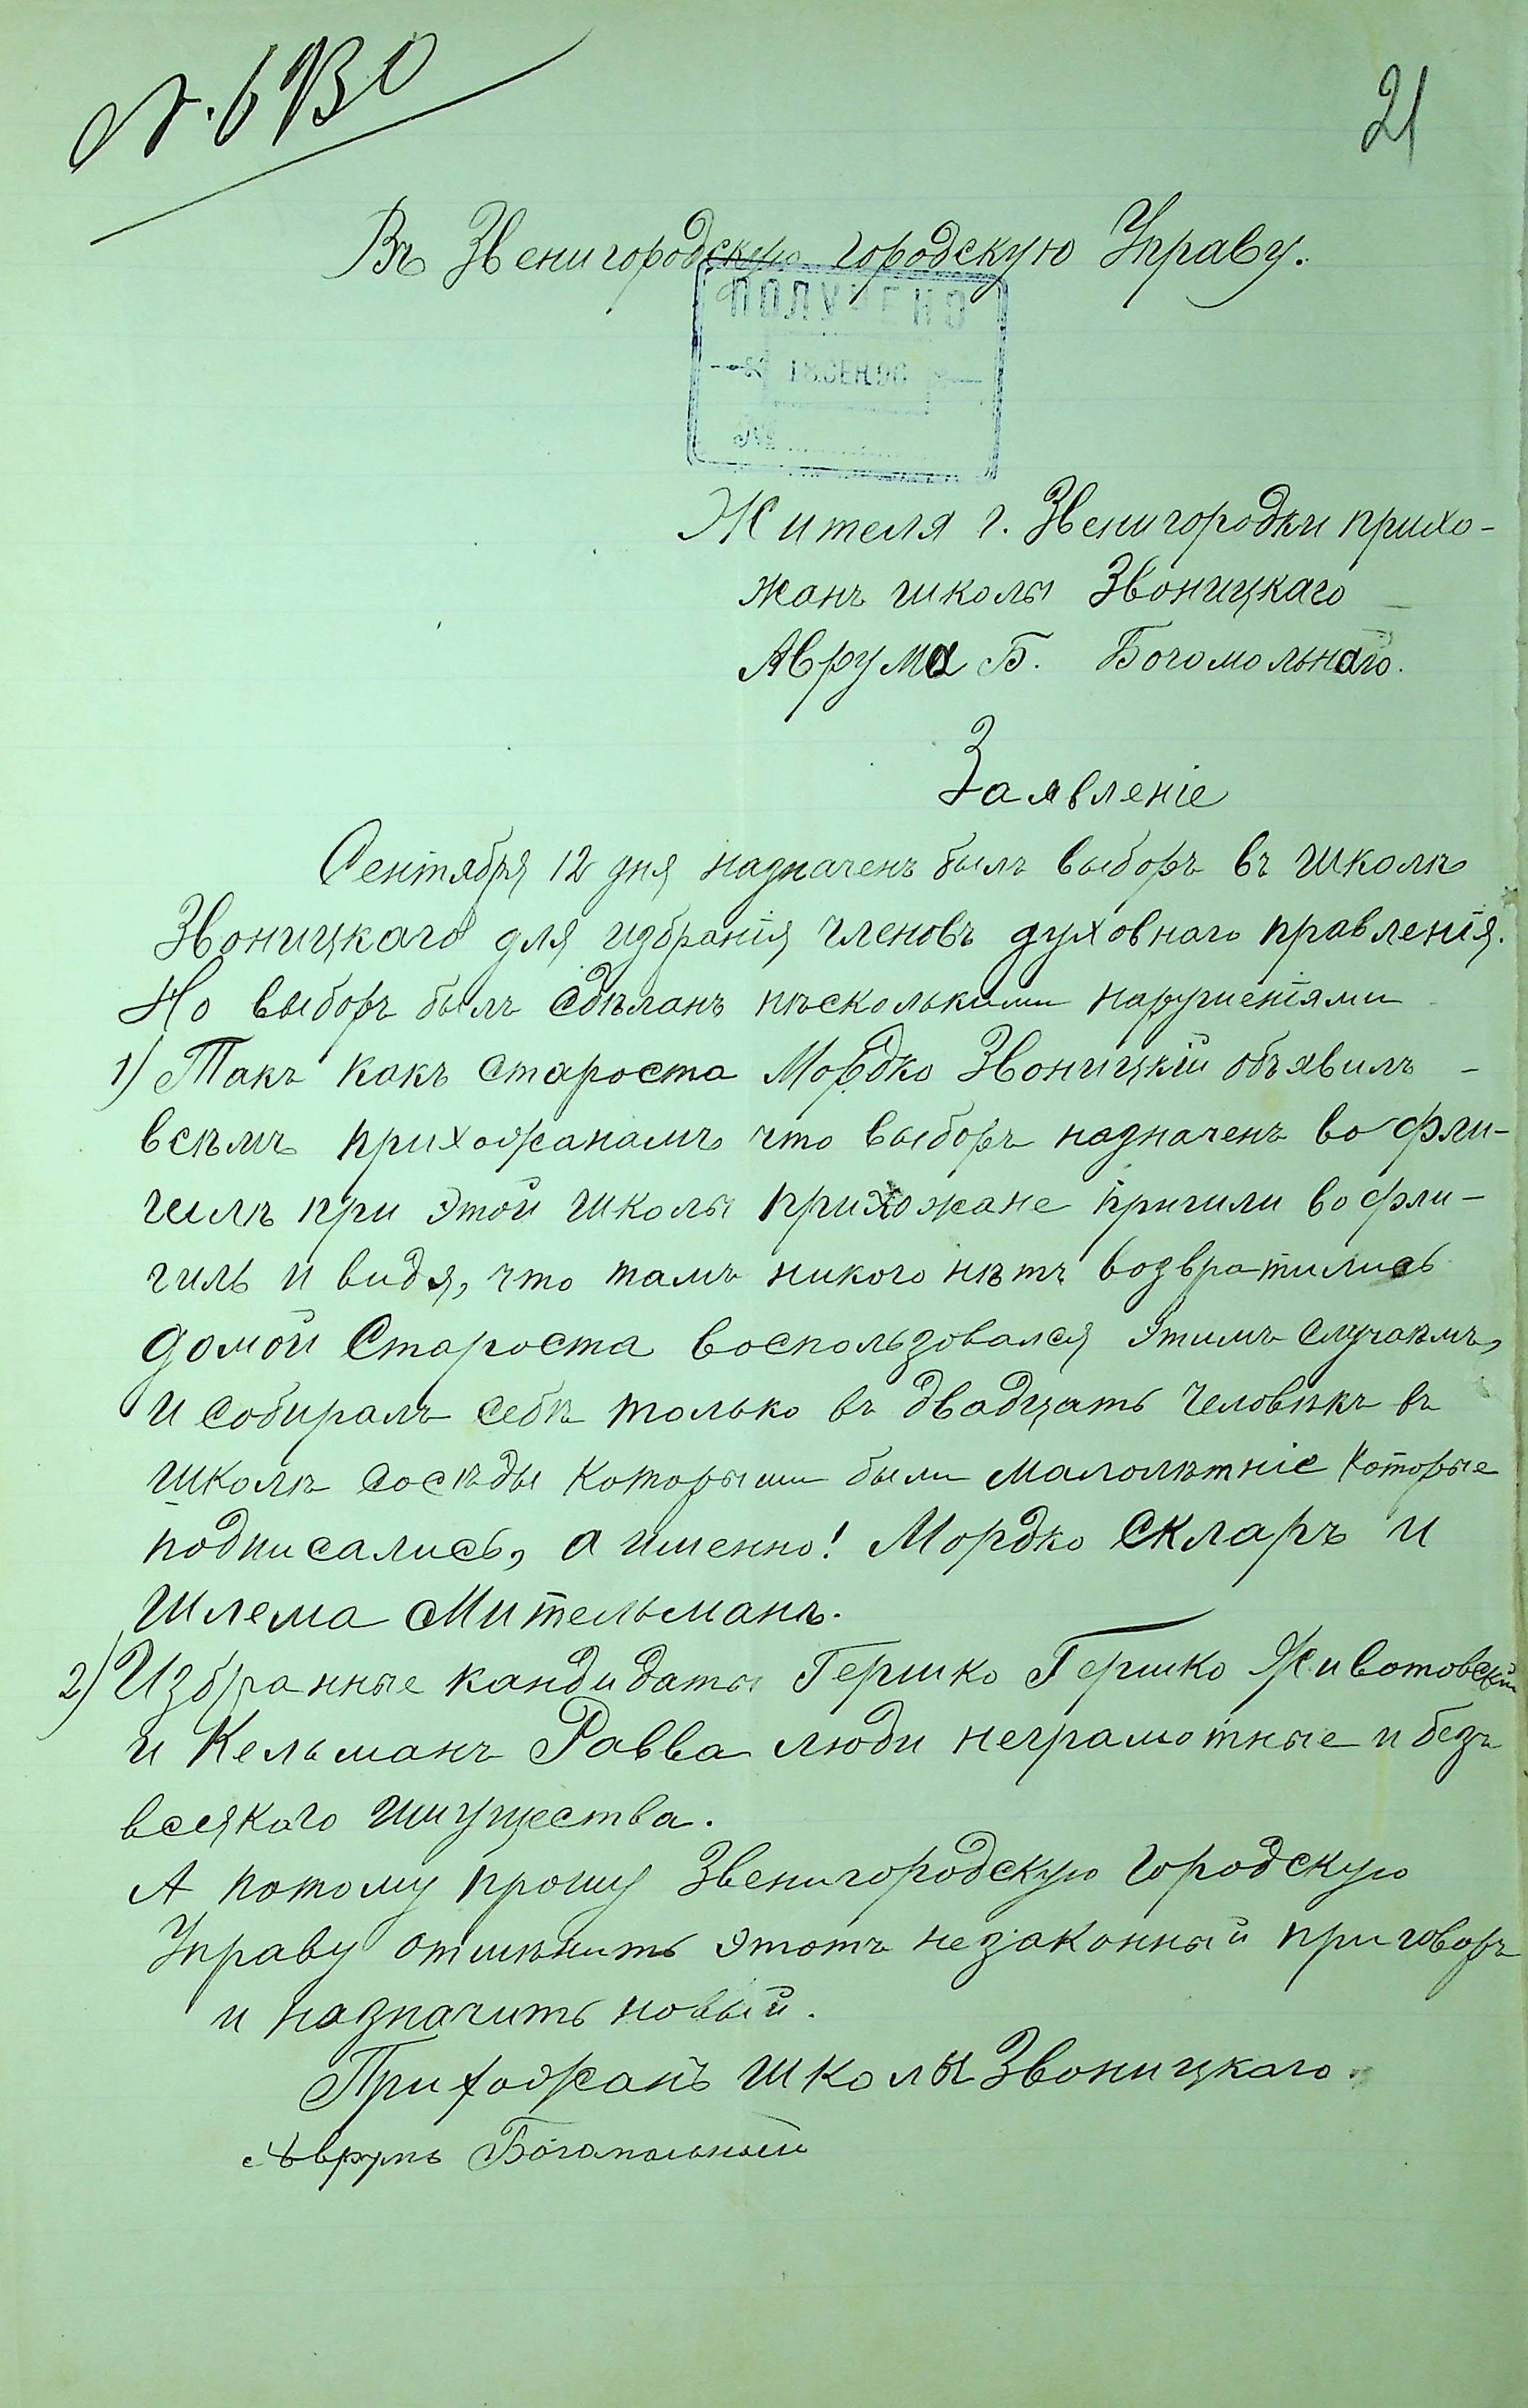 21
Въ Звенигородскую городскую Управу.
ПОЛУЧЕНО
18.СЕН.96
№
Жителя г. Звенигородки прихо-
жанъ школы Звоницкаго
Аврума Б. Богомольнаго.
Заявленіе
Сентября 12 дня назначенъ былъ выборъ въ школѣ
Звоницкаго для избранія членовъ духовнаго правленія.
Но выборъ былъ сдѣланъ нѣсколькими нарушеніями
1) Такъ какъ староста Мордко Звоницкій объявилъ -
всѣмъ прихожанамъ что выборъ назначенъ во фли-
гилѣ при этой школы прихожане пришли во фли-
гиль и видя, что тамъ никого нѣтъ возвратились
домой Староста воспользовался этимъ случаѣмъ,
и собиралъ себѣ только въ двадцать человѣкъ въ
школѣ сосѣды которыми были малолѣтніе которые
подписались, а именно! Мордко Скларъ и
Шлема Мительманъ.
2) Избранные кандидаты Гершко Гершко Животовскій
и Кельманъ Равва люди неграмотные и безъ
всякаго имущества.
А потому прошу Звенигородскую Городскую
Управу отмѣнить этотъ незаконный приговоръ
и назначить новый.
Прихожанъ школы Звоницкаго.
Аврумъ Богомольный